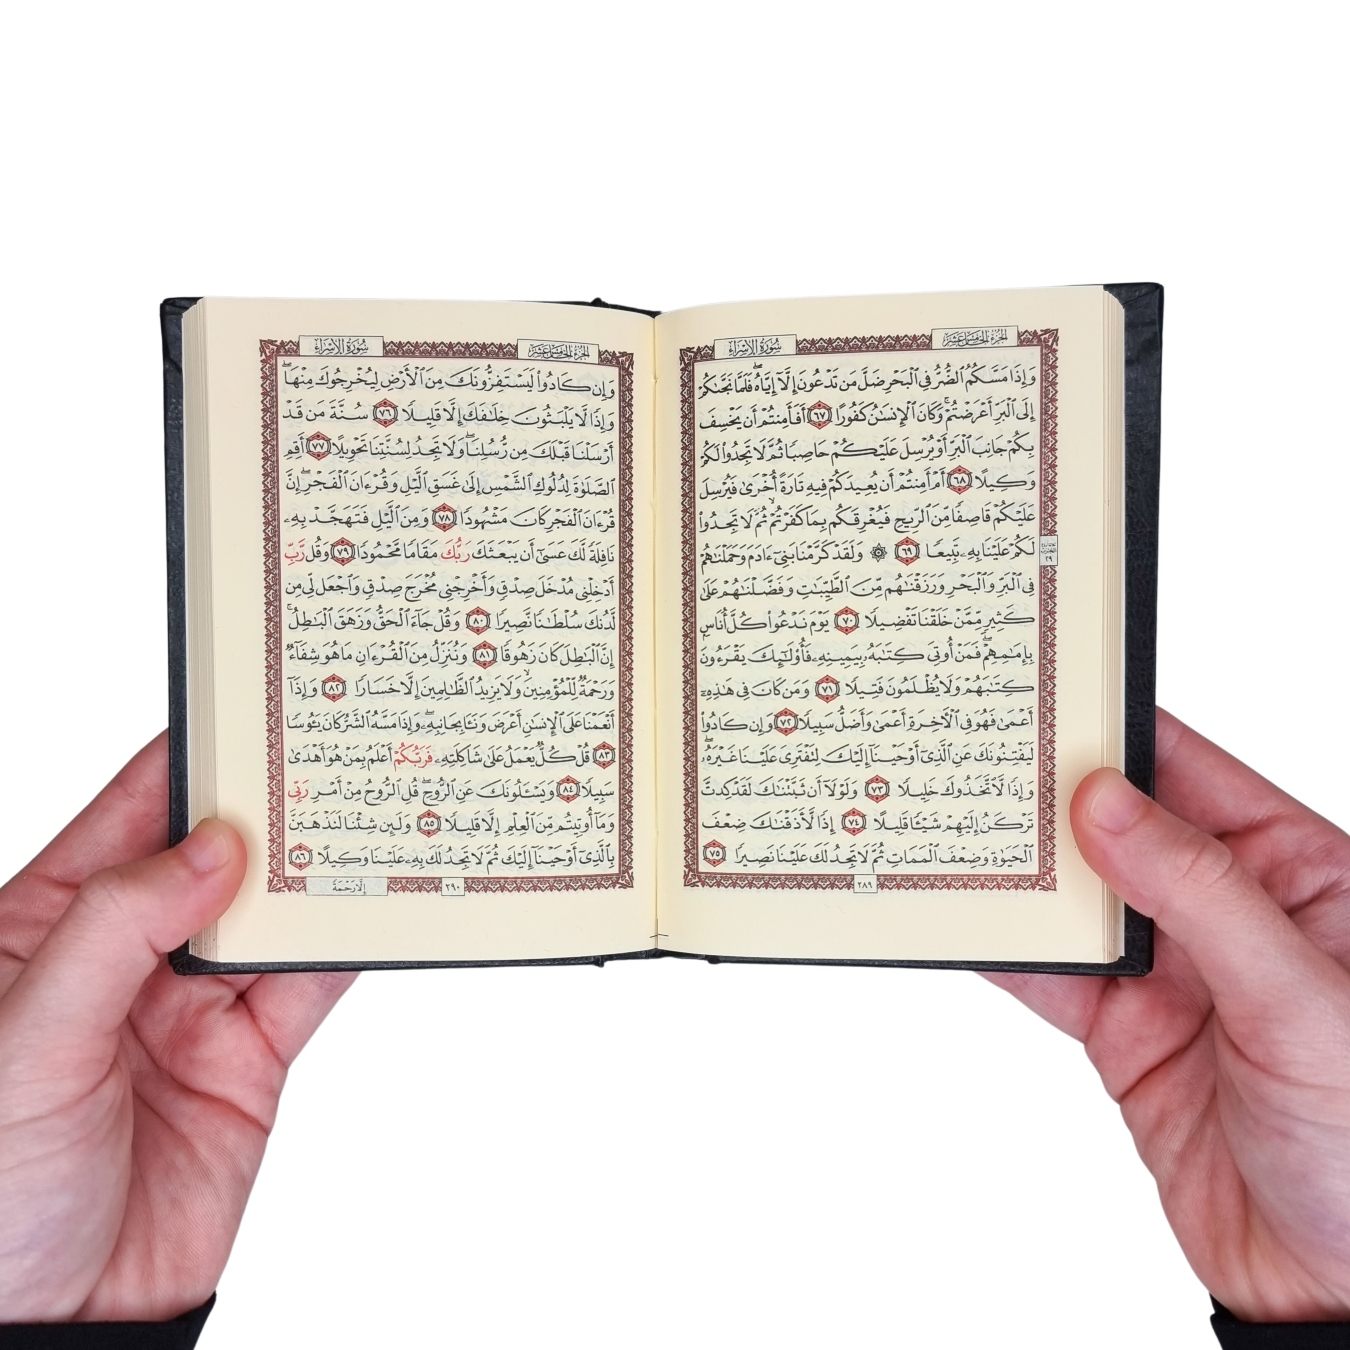 الجزء الخامس عشر
سورة الإسراء
وَإِذَا مَسَّكُمُ ٱلضُّرُّ فِي ٱلْبَحْرِ ضَلَّ مَن تَدْعُونَ إِلَّآ إِيَّاهُۖ فَلَمَّا نَجَّىٰكُمْ
إِلَى ٱلْبَرِّ أَعْرَضْتُمْۚ وَكَانَ ٱلْإِنسَٰنُ كَفُورًا ٦٧ أَفَأَمِنتُمْ أَن يَخْسِفَ
بِكُمْ جَانِبَ ٱلْبَرِّ أَوْ يُرْسِلَ عَلَيْكُمْ حَاصِبًا ثُمَّ لَا تَجِدُوا۟ لَكُمْ
وَكِيلًا ٦٨ أَمْ أَمِنتُمْ أَن يُعِيدَكُمْ فِيهِ تَارَةً أُخْرَىٰ فَيُرْسِلَ
عَلَيْكُمْ قَاصِفًا مِّنَ ٱلرِّيحِ فَيُغْرِقَكُم بِمَا كَفَرْتُمْۙ ثُمَّ لَا تَجِدُوا۟
لَكُمْ عَلَيْنَا بِهِۦ تَبِيعًا ٦٩ ۞ وَلَقَدْ كَرَّمْنَا بَنِيٓ ءَادَمَ وَحَمَلْنَٰهُمْ
فِي ٱلْبَرِّ وَٱلْبَحْرِ وَرَزَقْنَٰهُم مِّنَ ٱلطَّيِّبَٰتِ وَفَضَّلْنَٰهُمْ عَلَىٰ
كَثِيرٍ مِّمَّنْ خَلَقْنَا تَفْضِيلًا ٧٠ يَوْمَ نَدْعُوا۟ كُلَّ أُنَاسٍۭ
بِإِمَٰمِهِمْۖ فَمَنْ أُوتِيَ كِتَٰبَهُۥ بِيَمِينِهِۦ فَأُو۟لَٰٓئِكَ يَقْرَءُونَ
كِتَٰبَهُمْ وَلَا يُظْلَمُونَ فَتِيلًا ٧١ وَمَن كَانَ فِي هَٰذِهِۦٓ
أَعْمَىٰ فَهُوَ فِي ٱلْءَاخِرَةِ أَعْمَىٰ وَأَضَلُّ سَبِيلًا ٧٢ وَإِن كَادُوا۟
لَيَفْتِنُونَكَ عَنِ ٱلَّذِيٓ أَوْحَيْنَآ إِلَيْكَ لِتَفْتَرِيَ عَلَيْنَا غَيْرَهُۥۖ
وَإِذًا لَّٱتَّخَذُوكَ خَلِيلًا ٧٣ وَلَوْلَآ أَن ثَبَّتْنَٰكَ لَقَدْ كِدتَّ
تَرْكَنُ إِلَيْهِمْ شَيْـًٔا قَلِيلًا ٧٤ إِذًا لَّأَذَقْنَٰكَ ضِعْفَ
ٱلْحَيَوٰةِ وَضِعْفَ ٱلْمَمَاتِ ثُمَّ لَا تَجِدُ لَكَ عَلَيْنَا نَصِيرًا ٧٥
٢٨٩
الجزء الخامس عشر
سورة الإسراء
وَإِن كَادُوا۟ لَيَسْتَفِزُّونَكَ مِنَ ٱلْأَرْضِ لِيُخْرِجُوكَ مِنْهَاۖ
وَإِذًا لَّا يَلْبَثُونَ خِلَٰفَكَ إِلَّا قَلِيلًا ٧٦ سُنَّةَ مَن قَدْ
أَرْسَلْنَا قَبْلَكَ مِن رُّسُلِنَاۖ وَلَا تَجِدُ لِسُنَّتِنَا تَحْوِيلًا ٧٧ أَقِمِ
ٱلصَّلَوٰةَ لِدُلُوكِ ٱلشَّمْسِ إِلَىٰ غَسَقِ ٱلَّيْلِ وَقُرْءَانَ ٱلْفَجْرِۖ إِنَّ
قُرْءَانَ ٱلْفَجْرِ كَانَ مَشْهُودًا ٧٨ وَمِنَ ٱلَّيْلِ فَتَهَجَّدْ بِهِۦ
نَافِلَةً لَّكَ عَسَىٰٓ أَن يَبْعَثَكَ رَبُّكَ مَقَامًا مَّحْمُودًا ٧٩ وَقُل رَّبِّ
أَدْخِلْنِي مُدْخَلَ صِدْقٍ وَأَخْرِجْنِي مُخْرَجَ صِدْقٍ وَٱجْعَل لِّي مِن
لَّدُنكَ سُلْطَٰنًا نَّصِيرًا ٨٠ وَقُلْ جَآءَ ٱلْحَقُّ وَزَهَقَ ٱلْبَٰطِلُۚ
إِنَّ ٱلْبَٰطِلَ كَانَ زَهُوقًا ٨١ وَنُنَزِّلُ مِنَ ٱلْقُرْءَانِ مَا هُوَ شِفَآءٌ
وَرَحْمَةٌ لِّلْمُؤْمِنِينَۙ وَلَا يَزِيدُ ٱلظَّٰلِمِينَ إِلَّا خَسَارًا ٨٢ وَإِذَآ
أَنْعَمْنَا عَلَى ٱلْإِنسَٰنِ أَعْرَضَ وَنَـَٔا بِجَانِبِهِۦۖ وَإِذَا مَسَّهُ ٱلشَّرُّ كَانَ يَـُٔوسًا
٨٣ قُلْ كُلٌّ يَعْمَلُ عَلَىٰ شَاكِلَتِهِۦ فَرَبُّكُمْ أَعْلَمُ بِمَنْ هُوَ أَهْدَىٰ
سَبِيلًا ٨٤ وَيَسْـَٔلُونَكَ عَنِ ٱلرُّوحِۖ قُلِ ٱلرُّوحُ مِنْ أَمْرِ رَبِّي
وَمَآ أُوتِيتُم مِّنَ ٱلْعِلْمِ إِلَّا قَلِيلًا ٨٥ وَلَئِن شِئْنَا لَنَذْهَبَنَّ
بِٱلَّذِيٓ أَوْحَيْنَآ إِلَيْكَ ثُمَّ لَا تَجِدُ لَكَ بِهِۦ عَلَيْنَا وَكِيلًا ٨٦
٢٩٠
إلا رحمة